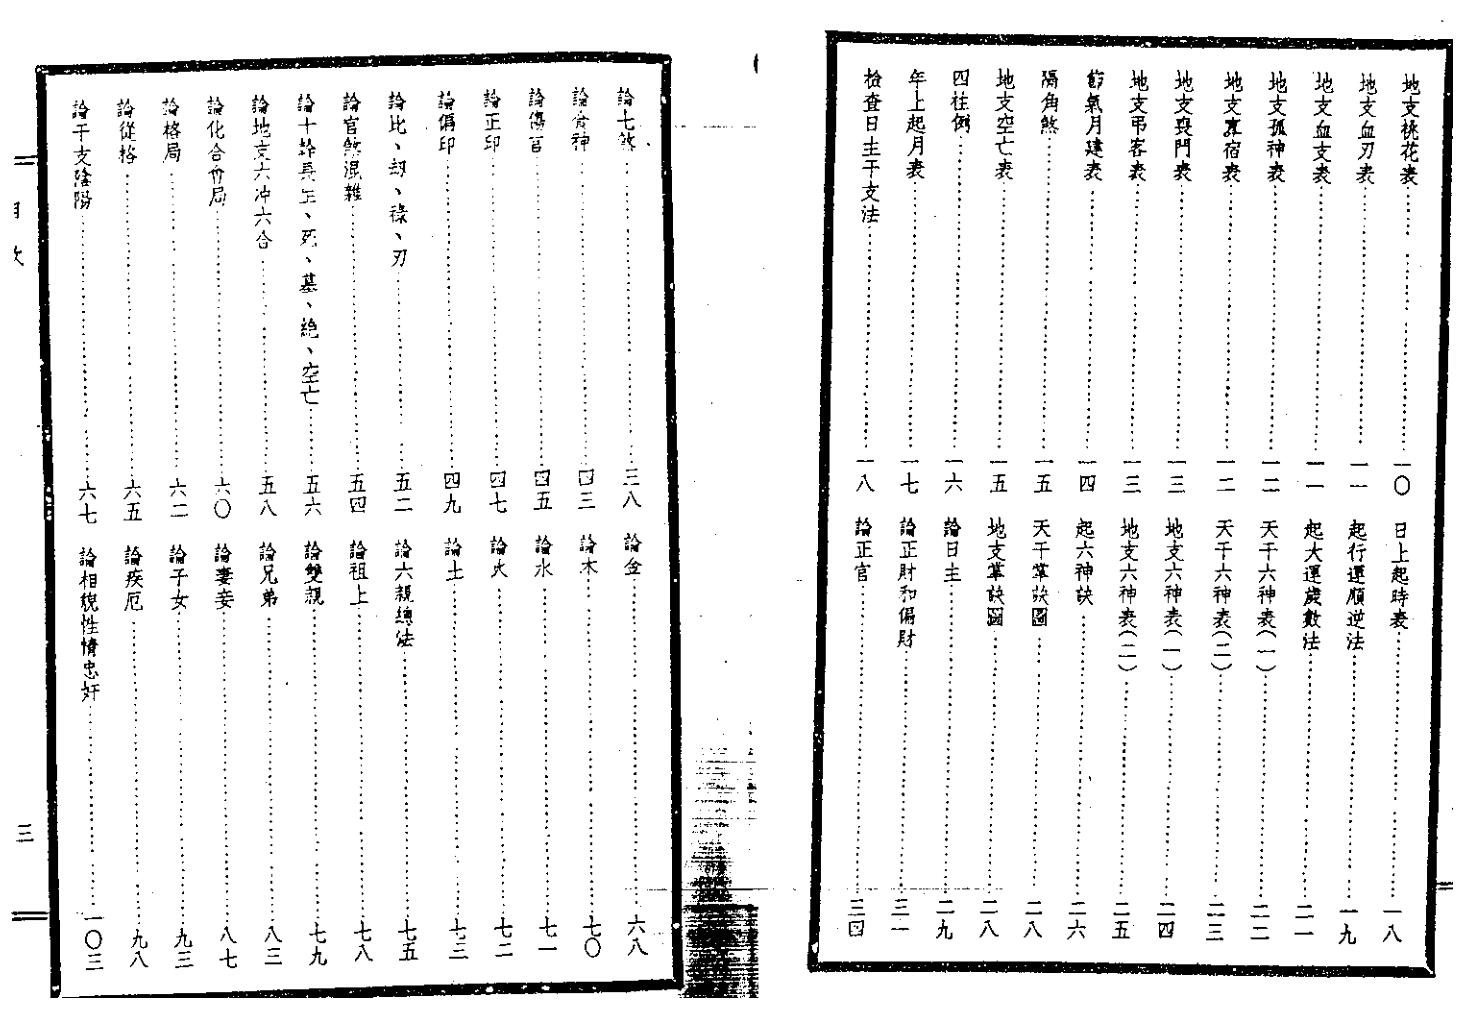 地支桃花表 一〇
地支血刃表 一一
地支血支表 一一
地支孤神表 一二
地支寡宿表 一二
地支喪門表 一三
地支弔客表 一三
節氣月建表 一四
隔角煞 一五
地支空亡表 一五
四柱例 一六
年上起月表 一七
檢查日主干支法 一八
日上起時表 一八
起行運順逆法 一九
起大運歲數法 二一
天干六神表(一) 二二
天干六神表(二) 二三
地支六神表(一) 二四
地支六神表(二) 二五
起六神訣 二六
天干掌訣圖 二八
地支掌訣圖 二八
論日主 二九
論正財和偏財 三一
論正官 三四
論七煞 三八
論食神 四三
論傷官 四五
論正印 四七
論偏印 四九
論比、刧、祿、刃 五二
論官煞混雜 五四
論十幹長生、死、墓、絶、空亡 五六
論地支六冲六合 五八
論化合會局 六〇
論格局 六二
論從格 六五
論干支陰陽 六七
論金 六八
論木 七〇
論水 七一
論火 七二
論土 七三
論六親總法 七五
論祖上 七八
論雙親 七九
論兄弟 八三
論妻妾 八七
論子女 九三
論疾厄 九八
論相貌性情忠奸 一〇三
目次
三